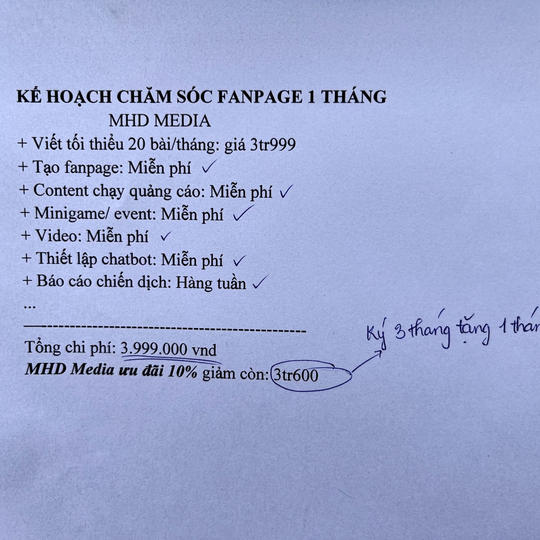 KẾ HOẠCH CHĂM SÓC FANPAGE 1 THÁNG
MHD MEDIA
+ Viết tối thiểu 20 bài/tháng: giá 3tr999
+ Tạo fanpage: Miễn phí ✓
+ Content chạy quảng cáo: Miễn phí ✓
+ Minigame/ event: Miễn phí ✓
+ Video: Miễn phí ✓
+ Thiết lập chatbot: Miễn phí ✓
+ Báo cáo chiến dịch: Hàng tuần ✓
...
Tổng chi phí: 3.999.000 vnd
MHD Media ưu đãi 10% giảm còn: 3tr600
Ký 3 tháng tặng 1 thán